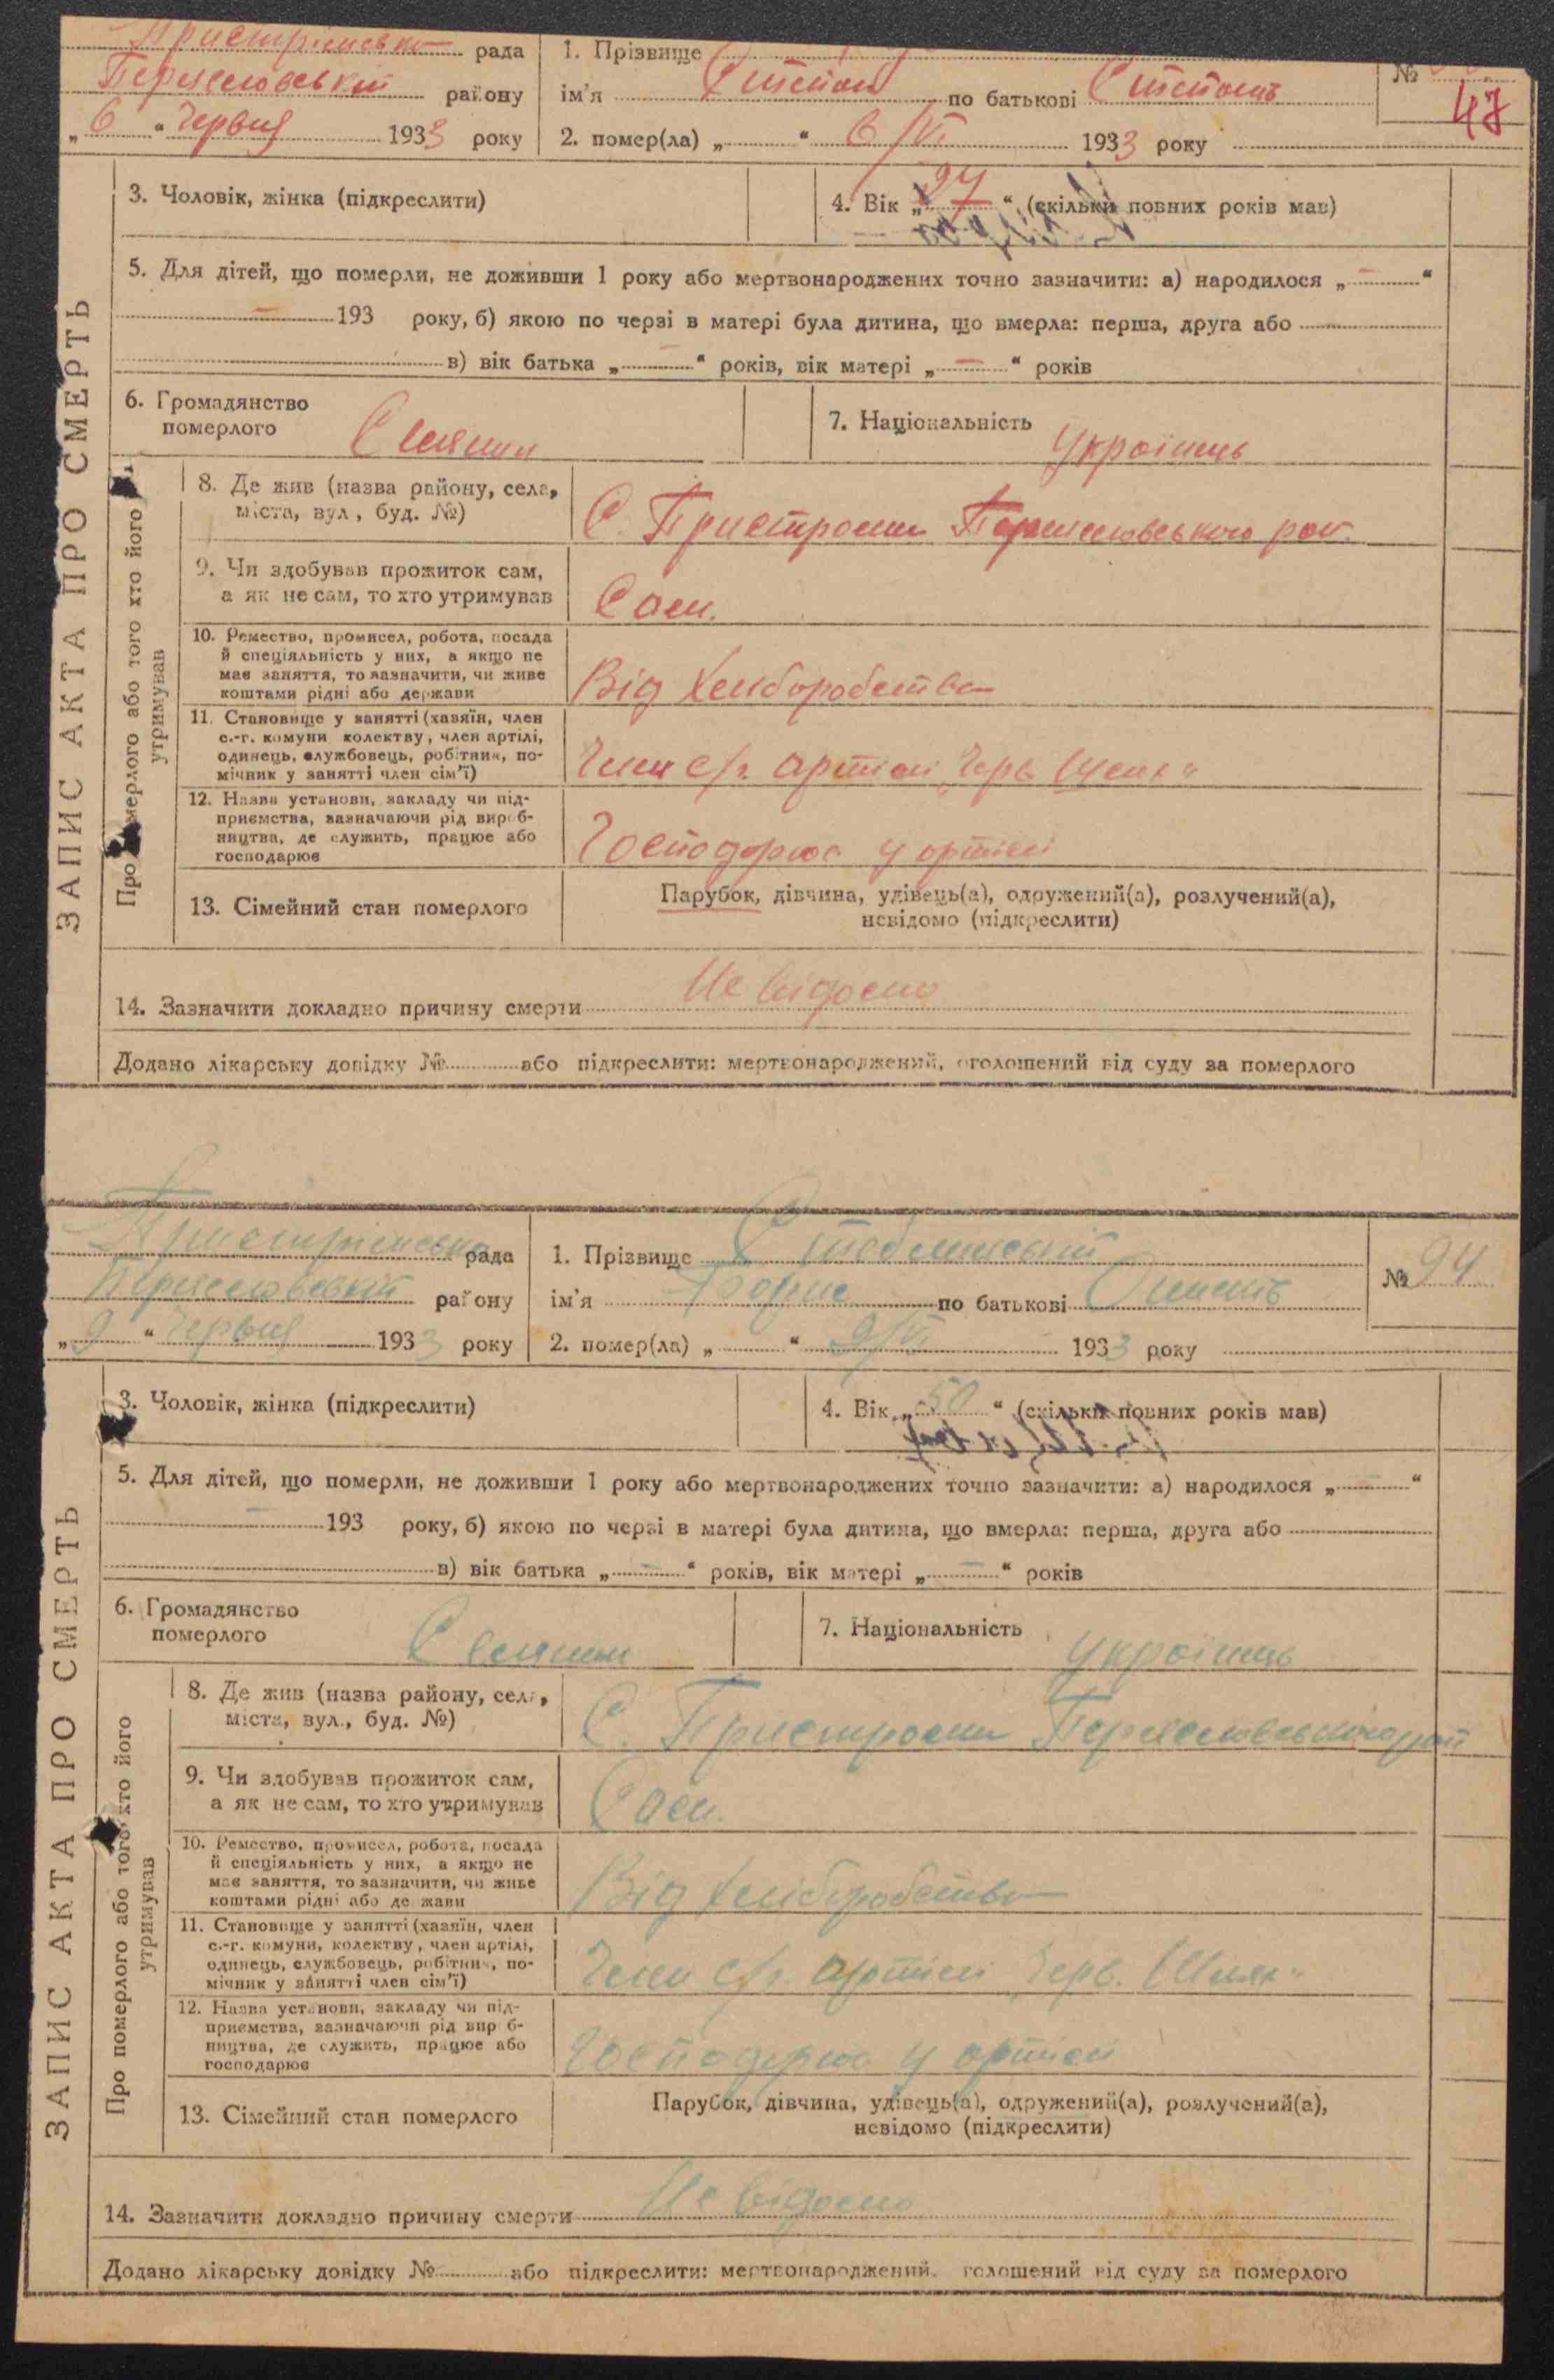 Пристрімська рада
Переяславський району
„ 6 “ Червня 1933 року
1. Прізвище
ім'я Степан по батькові Степанів
2. помер(ла) „ “ 6/VI 1933 року
№
47
3. Чоловік, жінка (підкреслити)
4. Вік „ 27 “ (скільки повних років мав)
5. Для дітей, що померли, не доживши 1 року або мертвонароджених точно зазначити: а) народилося „ — “
— 193 року, б) якою по черзі в матері була дитина, що вмерла: перша, друга або
в) вік батька „ — “ років, вік матері „ — “ років
6. Громадянство
померлого
Селянин
7. Національність Українець
ЗАПИС АКТА ПРО СМЕРТЬ
Про померлого або того хто його
утримував
8. Де жив (назва району, села,
міста, вул., буд. №)
С. Пристроми Переяславського рай.
9. Чи здобував прожиток сам,
а як не сам, то хто утримував
Сам.
10. Ремество, промисел, робота, посада
й спеціяльність у них, а якщо не
має заняття, то зазначити, чи живе
коштами рідні або держави
Від Хліборобства
11. Становище у занятті (хазяїн, член
с.-г. комуни колективу, член артілі,
одинець, службовець, робітник, по-
мічник у занятті член сім'ї)
Член с/г артілі „Черв. Шлях“
12. Назва установи, закладу чи під-
приємства, зазначаючи рід вироб-
ництва, де служить, працює або
господарює
Господарює у артілі
13. Сімейний стан померлого
Парубок, дівчина, удівець(а), одружений(а), розлучений(а),
невідомо (підкреслити)
14. Зазначити докладно причину смерти Не відомо
Додано лікарську довідку № або підкреслити: мертвонароджений, оголошений від суду за померлого
Пристрімська рада
Переяславський району
„ 9 “ Червня 1933 року
1. Прізвище Стеблинський
ім'я Борис по батькові
2. помер(ла) „ “ 9/VI 1933 року
№ 94
3. Чоловік, жінка (підкреслити)
4. Вік „ 50 “ (скільки повних років мав)
5. Для дітей, що померли, не доживши 1 року або мертвонароджених точно зазначити: а) народилося „ — “
— 193 року, б) якою по черзі в матері була дитина, що вмерла: перша, друга або
в) вік батька „ — “ років, вік матері „ — “ років
6. Громадянство
померлого
Селянин
7. Національність Українець
ЗАПИС АКТА ПРО СМЕРТЬ
Про померлого або того, хто його
утримував
8. Де жив (назва району, села,
міста, вул., буд. №)
С. Пристроми Переяславського рай
9. Чи здобував прожиток сам,
а як не сам, то хто утримував
Сам.
10. Ремество, промисел, робота, посада
й спеціяльність у них, а якщо не
має заняття, то зазначити, чи живе
коштами рідні або держави
Від Хліборобства
11. Становище у занятті (хазяїн, член
с.-г. комуни, колективу, член артілі,
одинець, службовець, робітник, по-
мічник у занятті член сім'ї)
Член с/г артілі „Черв. Шлях“
12. Назва установи, закладу чи під-
приємства, зазначаючи рід вироб-
ництва, де служить, працює або
господарює
Господарює у артілі
13. Сімейний стан померлого
Парубок, дівчина, удівець(а), одружений(а), розлучений(а),
невідомо (підкреслити)
14. Зазначити докладно причину смерти Не відомо
Додано лікарську довідку № або підкреслити: мертвонароджений, оголошений від суду за померлого